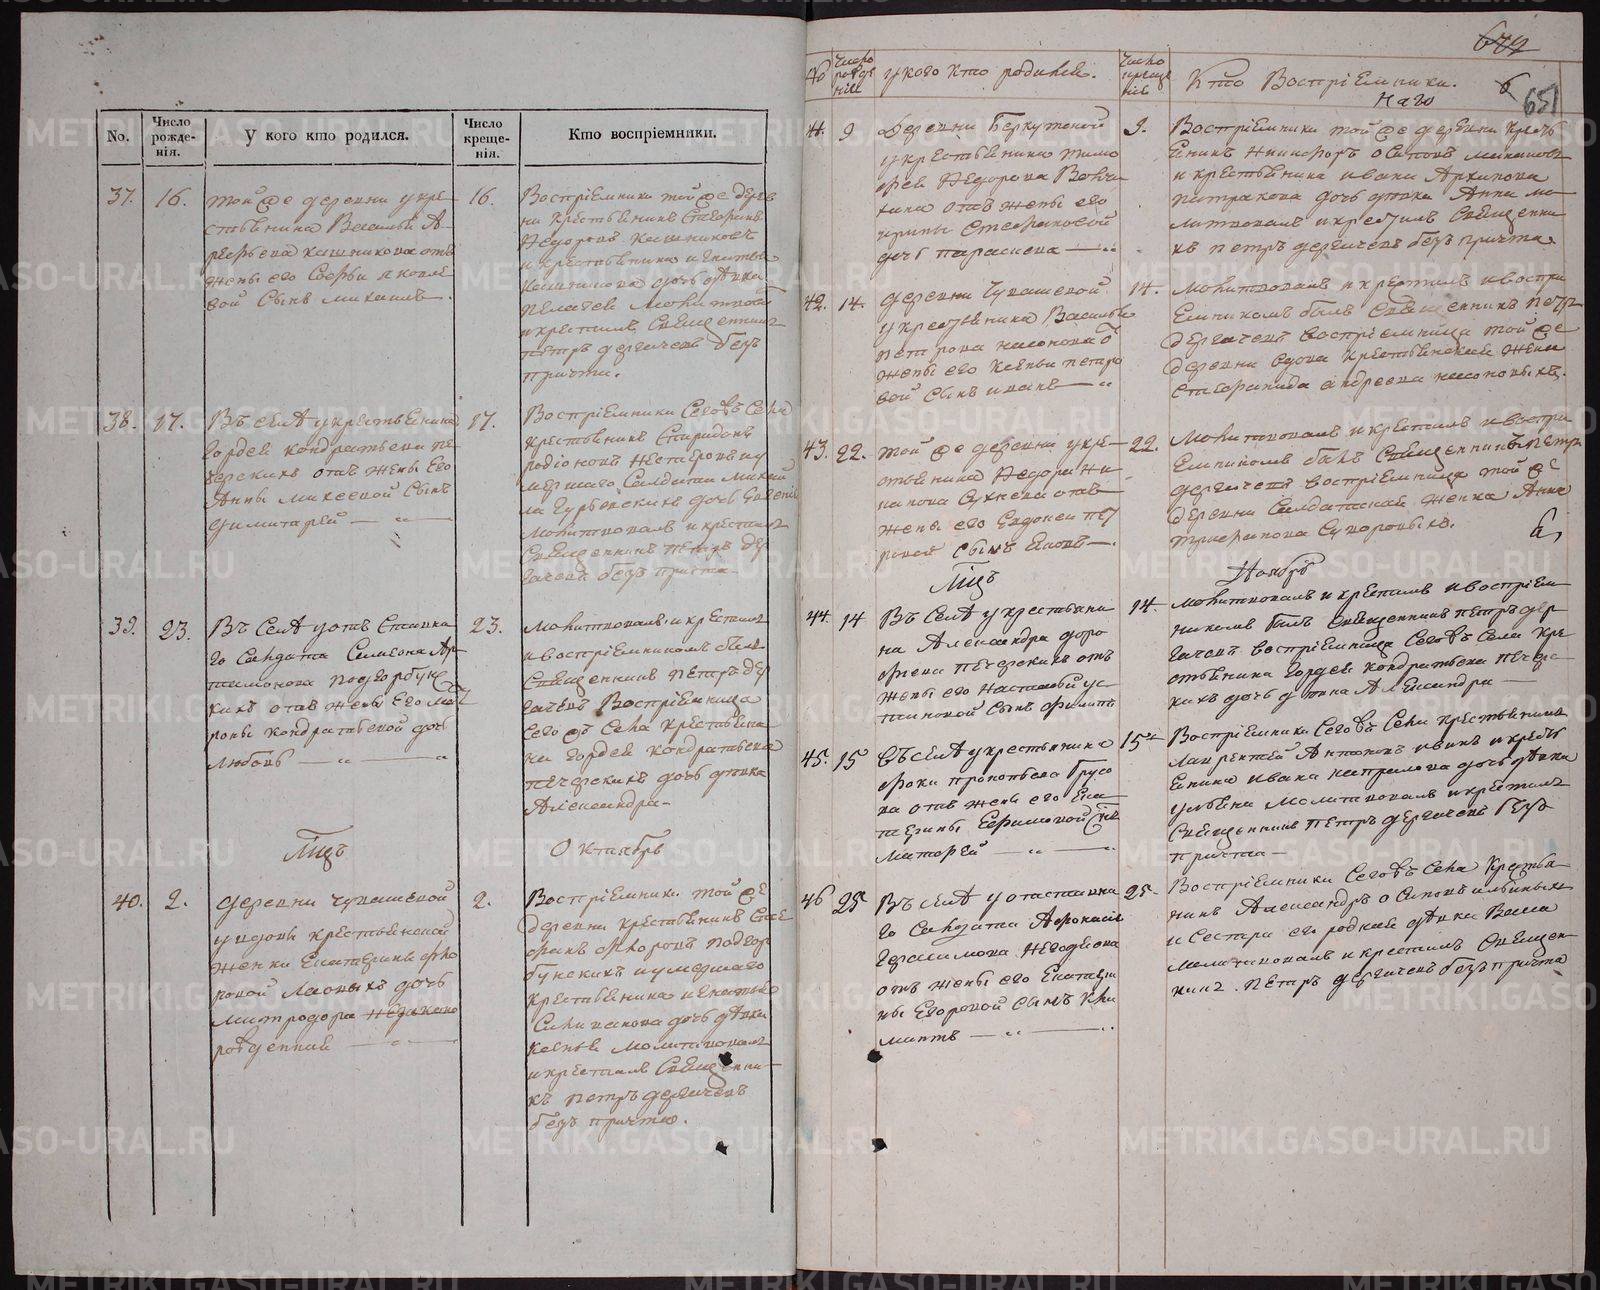 No.
Число рожде-нія.
У кого кто родился.
Число креще-нія.
Кто воспріемники.
37.
16.
той же деревни у кре-
стьянина Василья А-
рефьева Кашникова отъ
жены его Софьи Яковле
вой Сынъ михаилъ.
16.
Воспріемники той же дерев
ни крестьянинъ
Федоровъ Кашниковъ
и крестьянина игнатья
Кашникова дочь дѣвка
Пелагея Молитвовалъ
и крестилъ Священникъ
петръ дергачевъ безъ
причта.
38.
17.
Въ селѣ у крестьянина
Гордея кондратьева пе
черскихъ отъ жены его
Анны михеевой Сынъ
димитрей
17.
Воспріемники Сегожъ Села
крестьянинъ Спиридонъ
родіоновъ Нестеровъ и у
мершаго Солдата михай
ла дочь Евгенія
Молитвовалъ и крестилъ
Священникъ петръ дер
гачевъ безъ причта
39.
23.
Въ Селѣ у отставна
го Солдата Симеона Ар
тамонова подгорбун
скихъ отъ жены его мат
роны кондратьевой дочь
любовь
23.
Молитвовалъ и крестилъ
и воспріемникомъ былъ
Священникъ петръ дер
гачевъ Воспріемница
Сегожъ Села крестьяни
на Гордея кондратьева
печерскихъ дочь дѣвка
Александра
Мцъ
Октябрь
40.
2.
деревни Чувашевой
у вдовы крестьянской
женки Екатерины фло
ровой дочь
митродора незаконно
рожденная
2.
Воспріемники той же
деревни крестьянинъ Сте
фанъ флоровъ подгор
бунскихъ и умершаго
крестьянина игнатья
Силиванова дочь дѣвка
ксенья молитвовалъ
и крестилъ Священни
къ петръ дергачевъ
безъ причта.
679
6
651
No
Число рожде нія
у кого кто родился.
Число креще нія
Кто Воспріемники.
41.
9
Деревни Беркутовой
у крестьянина тимо
фея Федорова
отъ жены его
ирины Стефановой
дочь параскева
9.
Воспріемники той же деревни кресть
янинъ никифоръ осиповъ
и крестьянина ивана Архипова
патракова дочь дѣвка Анна мо
литвовалъ и крестилъ Священни
къ петръ дергачевъ безъ причта
42.
14.
деревни Чувашевой
у крестьянина Василья
петрова насонова отъ
жены его Ксеньи петро
вой сынъ иванъ
14.
Молитвовалъ и крестилъ и воспрі
емникомъ былъ Священникъ петръ
дергачевъ воспріемница той же
деревни вдова крестьянская жена
Стефанида андреева насоновыхъ.
43.
22.
той же деревни у кре-
стьянина Федора
отъ
жены его Евдокеи пет
ровой сынъ Яковъ
22.
Молитвовалъ и крестилъ и воспрі
емникомъ былъ Священникъ петръ
дергачевъ воспріемница той же
деревни Солдатская женка Анна
трифонова
Мцъ
Ноябрь
44.
14
Въ Селѣ у крестьяни
на Александра доро
феева печерскихъ отъ
жены его настасьи ус
тиновой сынъ филипъ
14.
молитвовалъ и крестилъ и воспріем
никомъ былъ Священникъ петръ дер
гачевъ воспріемница Сегожъ Села кре
стьянина Гордея кондратьева печерс
кихъ дочь дѣвка Александра
45.
15
Въ селѣ у крестьянина
фоки прокопьева Брусо
ва отъ жены его Ека
терины Ефимовой сынъ
матфей
15
Воспріемники Сегожъ Села крестьянинъ
Лаврентей Антоновъ и кресть
янина ивана дочь дѣвка
ульяна молитвовалъ и крестилъ
Священникъ петръ дергачевъ безъ
причта
46
25
Въ селѣ у отставна
го Солдата Афонасья
Герасимова
отъ жены его Екатери
ны Егоровой сынъ Кли
ментъ
25.
Воспріемники Сегожъ Села Крестья
нинъ Александръ осиповъ
и Сестра его родная дѣвка Васса
молитвовалъ и крестилъ Священ
никъ петръ дергачевъ безъ причта